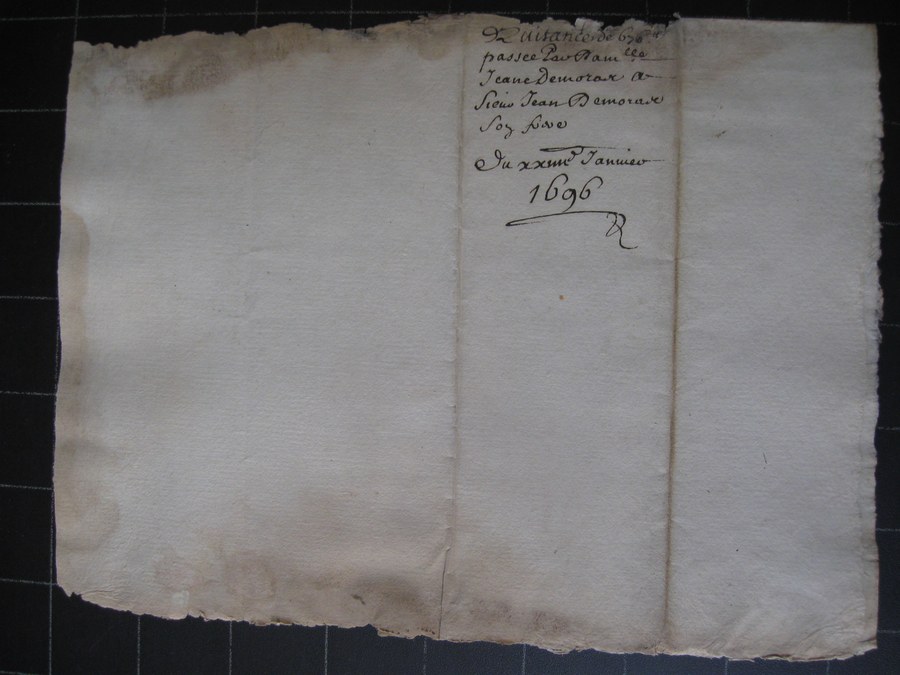 Quitance de 67
passée Par Dam.lle
Jeane Demorax a
Sieur Jean Demorax
Son frere
Du xxiiii.e Janvier
1696